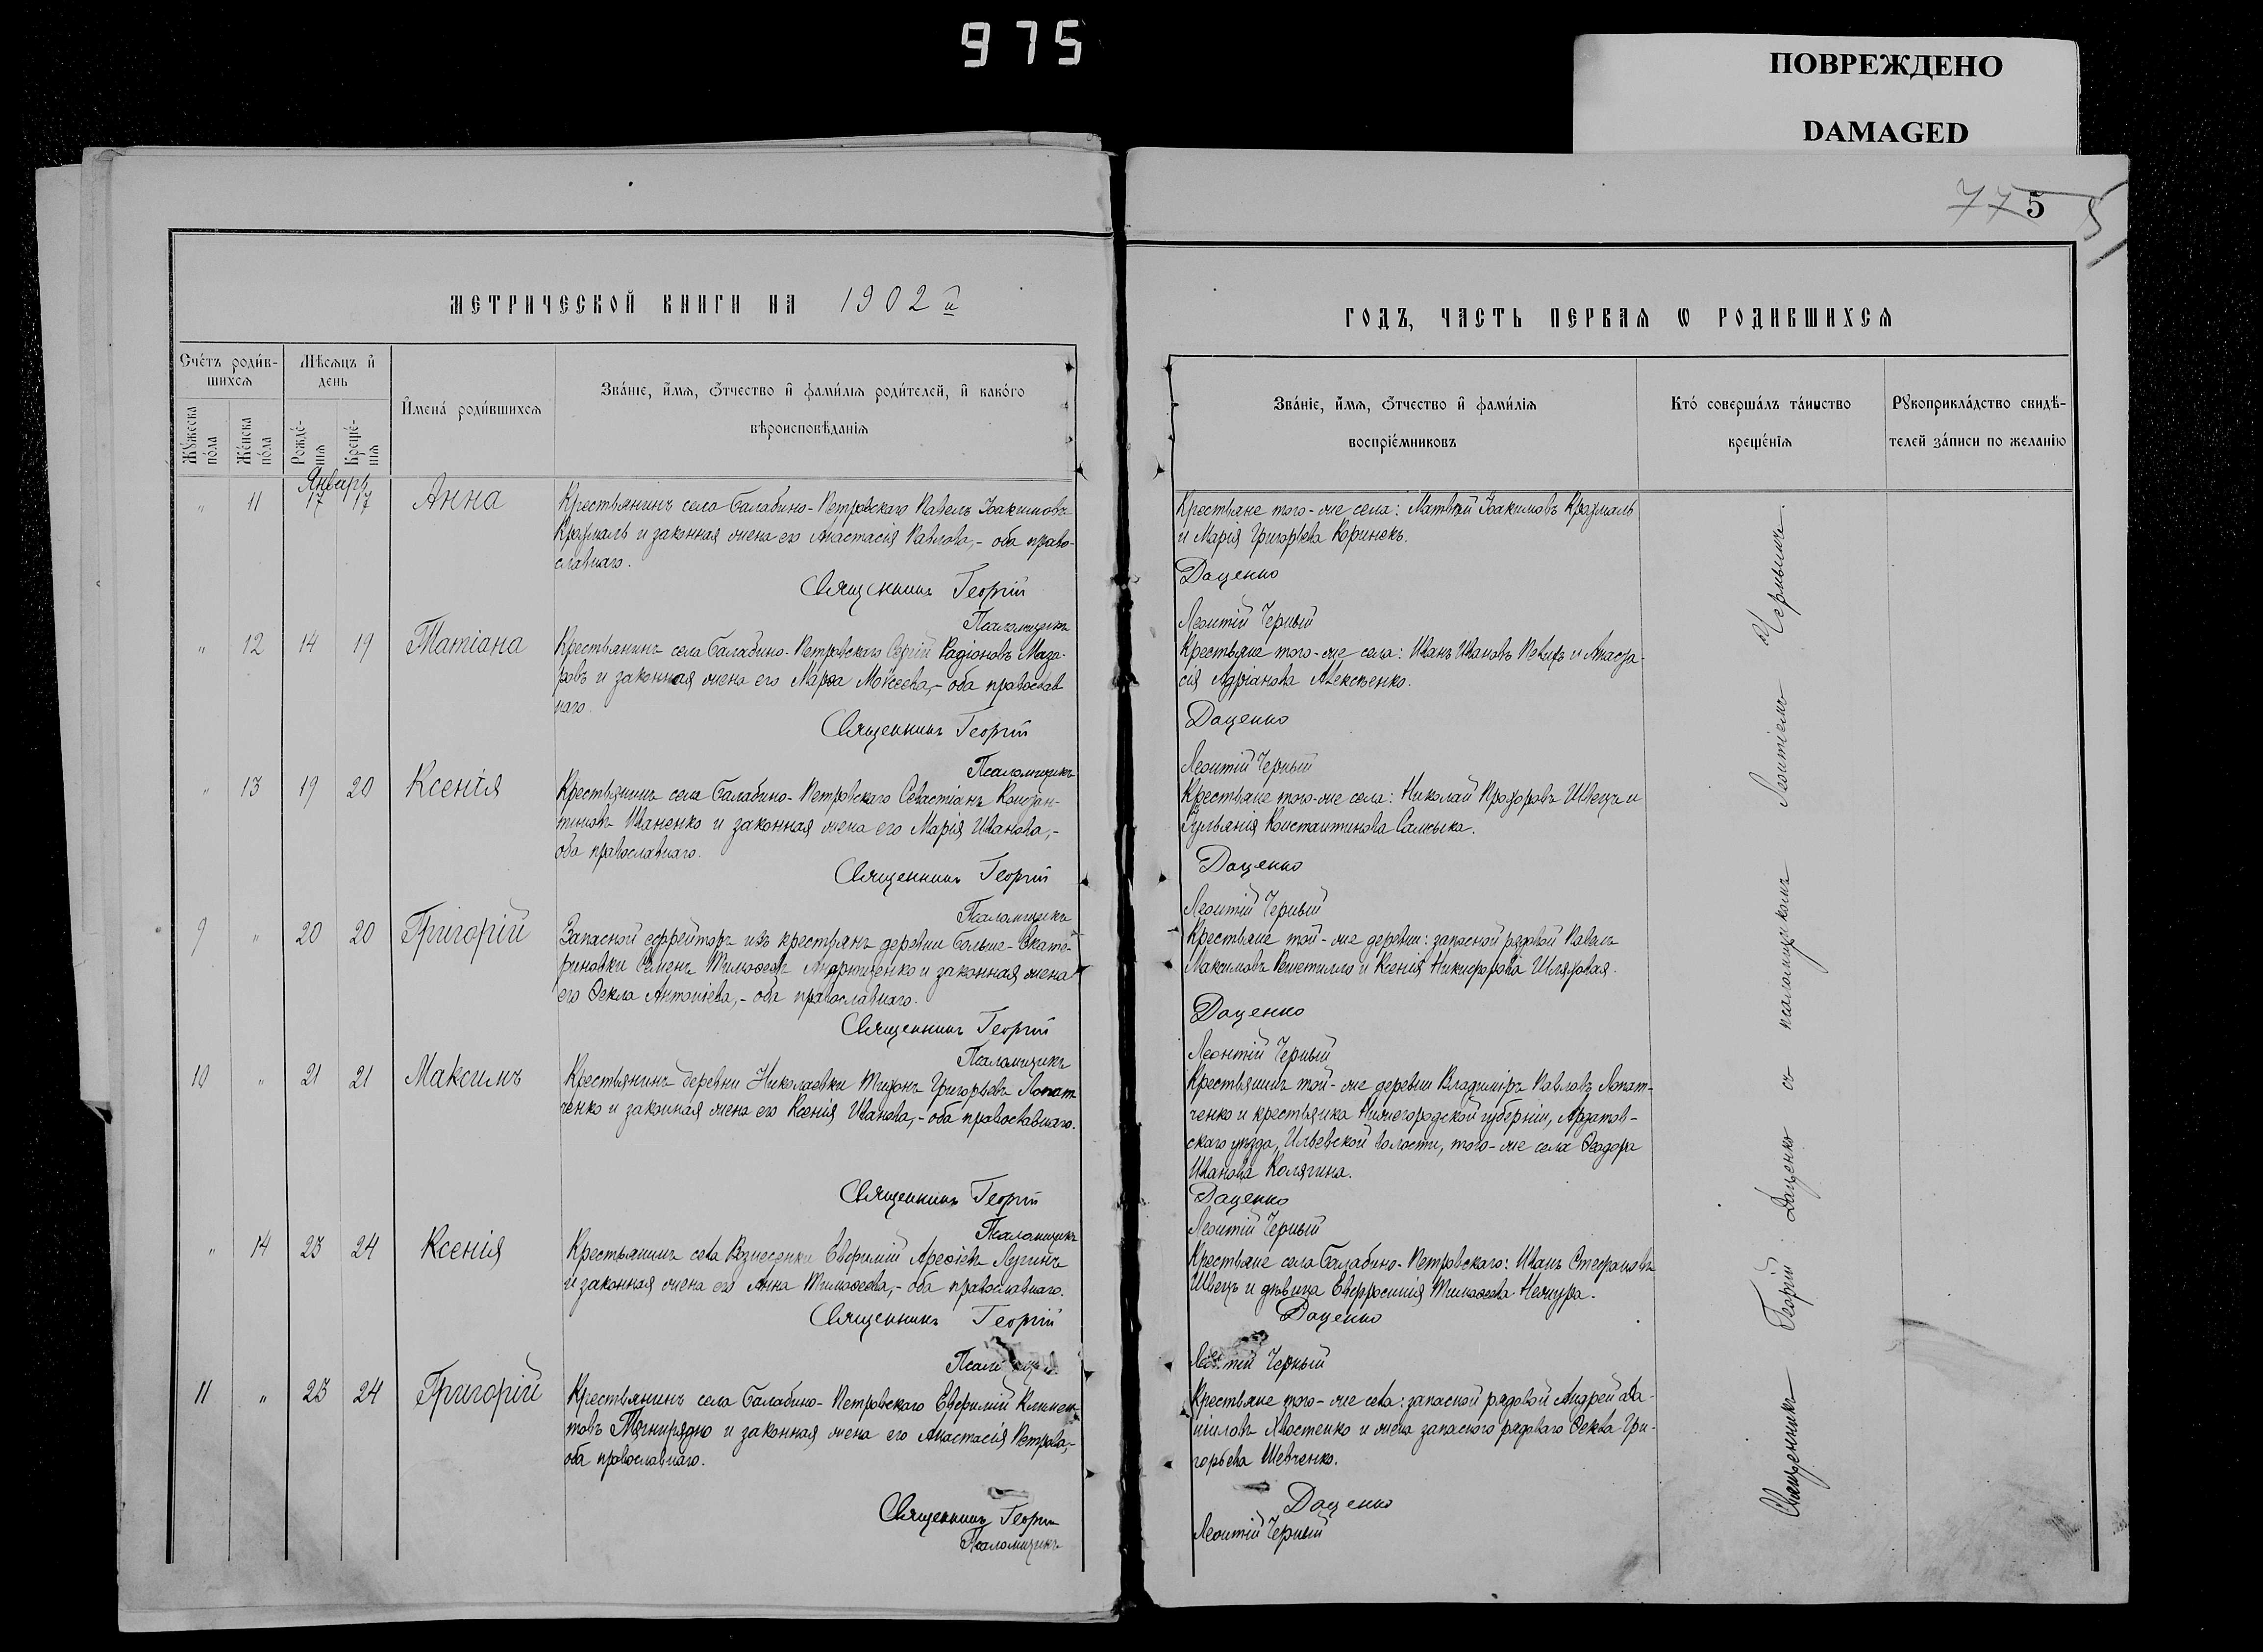 975
ПОВРЕЖДЕНО
DAMAGED
775 5
МЕТРИЧЕСКОЙ КНИГИ НА 1902й
Счéтъ роди́в-
шихсѧ
Мѣсѧцъ и҆
день
Мꙋ́жеска
по́ла
Же́нска
по́ла
Рожде́-
нїѧ
Креще́-
нїѧ
И҆мена́ роди́вшихсѧ
Зва́нїе, и҆́мѧ, ѻ҆́тчество и҆ фами́лїѧ роди́телей, и҆ како́гѡ
вѣроисповѣ́данїѧ
Январь
" 11 17 17 Анна
Крестьянинъ села Балабино-Петровскаго Павелъ Іоакимовъ
Крахмаль и законная жена его Анастасія Павлова,- оба право-
славнаго.
Священникъ Георгій
Псаломщикъ
" 12 14 19 Татіана
Крестьянинъ села Балабино-Петровскаго Сергій Радіоновъ Маза-
ровъ и законная жена его Марѳа Моѵсеева,- оба православ
наго.
Священникъ Георгій
Псаломщикъ
" 13 19 20 Ксенія
Крестьянинъ села Балабино-Петровскаго Севастіанъ Констан-
тиновъ Иваненко и законная жена его Марія Иванова,-
оба православнаго.
Священникъ Георгій
Псаломщикъ
9 " 20 20 Григорій
Запасной ефрейторъ изъ крестьянъ деревни Больше-Екате-
риновки Семенъ Тимоѳеевъ Андрющенко и законная жена
его Ѳекла Антоніева,- оба православнаго.
Священникъ Георгій
Псаломщикъ
10 " 21 21 Максимъ
Крестьянинъ деревни Николаевки Тихонъ Григорьевъ Лопат
ченко и законная жена его Ксенія Иванова,- оба православнаго.
Священникъ Георгій
Псаломщикъ
" 14 23 24 Ксенія
Крестьянинъ села Вознесенки Евфимій Ареѳіевъ
и законная жена его Анна Тимоѳеева,- оба православнаго.
Священникъ Георгій
11 " 23 24 Григорій
Крестьянинъ села Балабино-Петровскаго Евфимій Климен-
товъ Тягнирядно и законная жена его Анастасія Петрова,-
оба православнаго.
Священникъ Георгій
Псаломщикъ
ГОДЪ, ЧАСТЬ ПЕРВАѦ Ѡ РОДИВШИХСѦ
Зва́нїе, и҆́мѧ, ѻ҆́тчество и҆ фами́лїѧ
воспрїе́мниковъ
Кто́ соверша́лъ та́инство
креще́нїѧ
Рꙋкоприкла́дство свидѣ́-
телей за́писи по жела́нїю
Крестьяне того-же села: Матвѣй Іоакимовъ Крахмаль
и Марія Григорьева Коринекъ.
Даценко
Леонтій Черный
Крестьяне того-же села: Иванъ Ивановъ и Анаста-
сія Адріанова Алексѣенко.
Даценко
Леонтій Черный
Крестьяне того-же села: Николай Прохоровъ Швецъ и
Іуліанія Константинова Самсыка.
Даценко
Леонтій Черный
Крестьяне той-же деревни: запасной рядовой Павелъ
Максимовъ Решетилло и Ксенія Никифорова Шляховая.
Даценко
Леонтій Черный
Крестьянинъ той-же деревни Владиміръ Павловъ Лопат-
ченко и крестьянка Нижегородской губерніи, Ардатов-
скаго уѣзда, Ильевской волости, того-же села Ѳеодора
Иванова Колягина.
Даценко
Леонтій Черный
Крестьяне села Балабино-Петровскаго: Иванъ Стефановъ
Швецъ и дѣвица Евфросинія Тимоѳеева Нежура.
Даценко
Леонтій Черный
Крестьяне того-же села: запасной рядовой Андрей Да-
ніиловъ Хвостенко и жена запаснаго рядоваго Ѳекла Гри-
горьева Шевченко.
Даценко
Леонтій Черный
Священникъ Георгій Даценко съ псаломщикомъ Леонтіемъ Чернымъ.